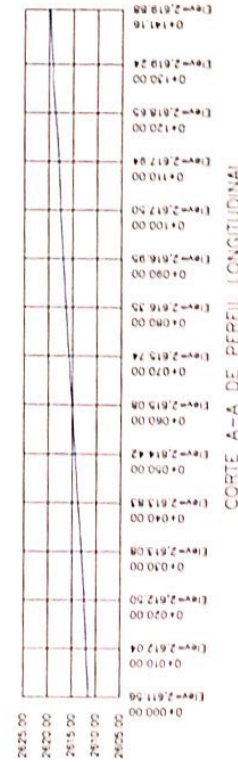 2625.00
2620.00
2615.00
2610.00
2605.00
0+000.00
Elev=2,611.56
0+010.00
Elev=2,612.04
0+020.00
Elev=2,612.50
0+030.00
Elev=2,613.08
0+040.00
Elev=2,613.83
0+050.00
Elev=2,614.42
0+060.00
Elev=2,615.08
0+070.00
Elev=2,615.74
0+080.00
Elev=2,616.35
0+090.00
Elev=2,616.95
0+100.00
Elev=2,617.50
0+110.00
Elev=2,617.94
0+120.00
Elev=2,618.65
0+130.00
Elev=2,619.24
0+141.16
Elev=2,619.88
CORTE A-A DE PERFIL LONGITUDINAL